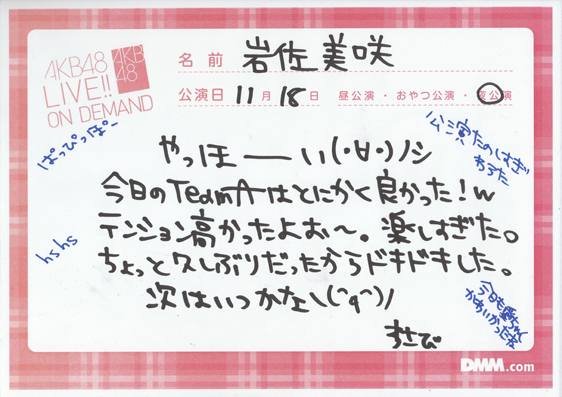 AKB48
LIVE!!
ON DEMAND
AKB
48
名前 岩佐美咲
公演日 11月18日 昼公演・おやつ公演・夜公演
ぱっぴっぽー
公演たのしすぎ
わろた
やっほーい(・∀・)ノシ
今日のTeamAはとにかく良かった!w
テンション高かったよお〜。楽しすぎた。
hshs
ちょっと久しぶりだったからドキドキした。
次はいつかな\(^q^)/
今日も
かわいかったな
DMM.com